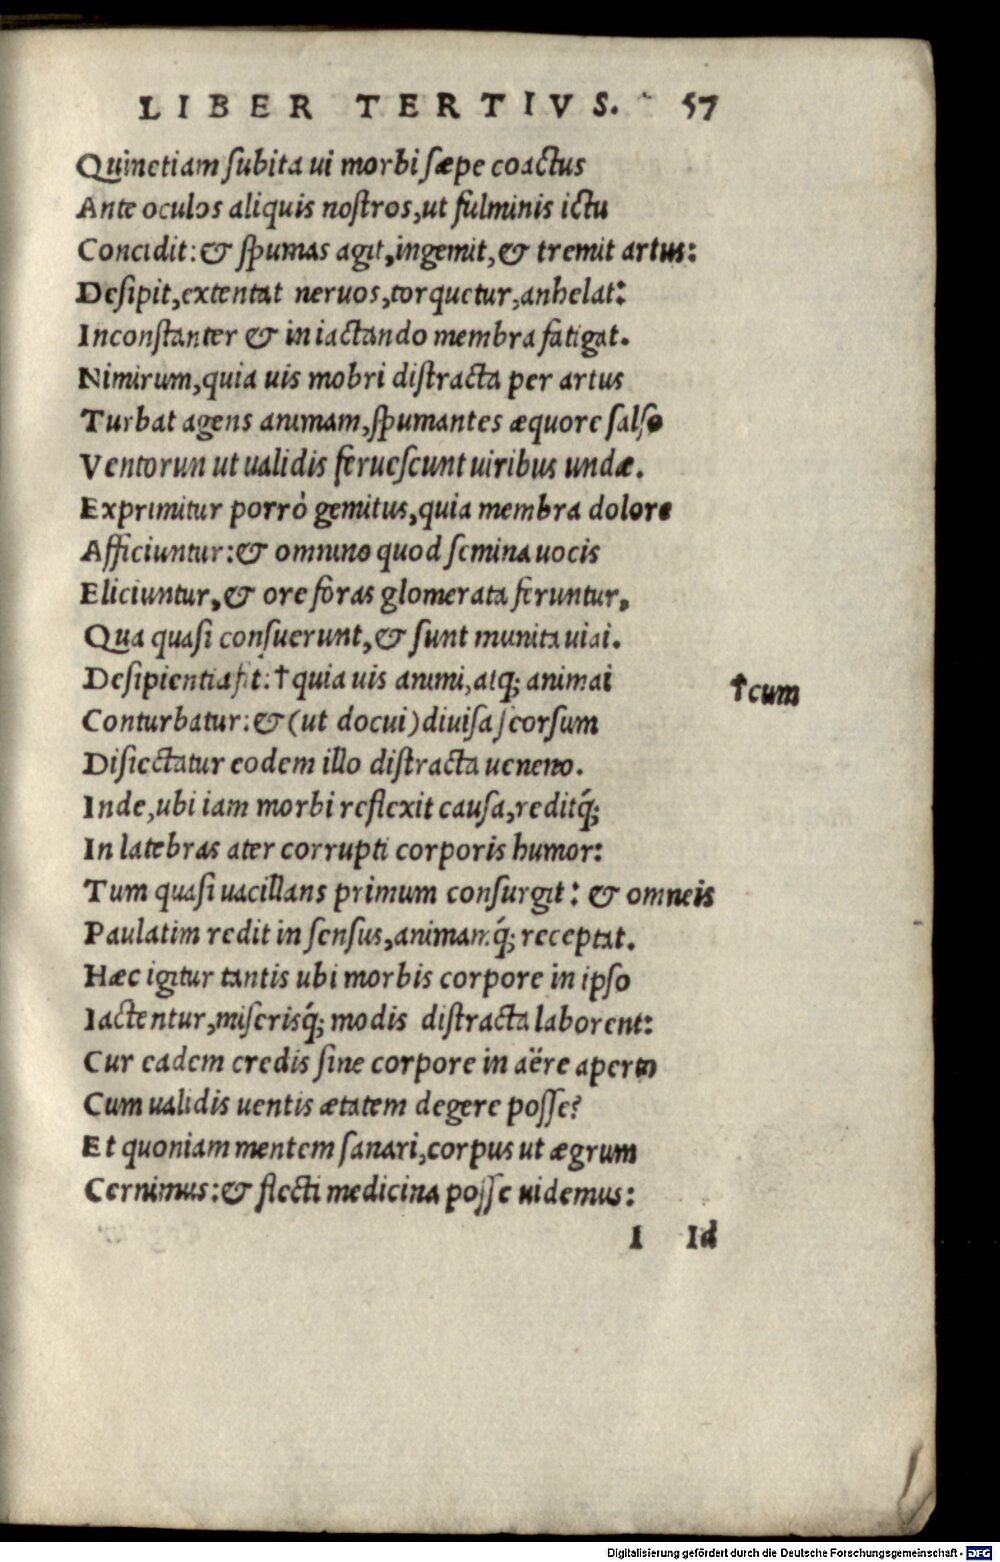 LIBER TERTIVS. 57
Quinetiam ſubita ui morbi ſæpe coactus
Ante oculos aliquis noſtros,ut fulminis ictu
Concidit:& ſpumas agit,ingemit,& tremit artus:
Deſipit,extentat neruos,torquetur,anhelat:
Inconſtanter & in iactando membra fatigat.
Nimirum,quia uis mobri diſtracta per artus
Turbat agens animam,ſpumantes æquore ſalſo
Ventorun ut ualidis ferueſcunt uiribus undæ.
Exprimitur porrò gemitus,quia membra dolore
Afficiuntur:& omnino quod ſemina uocis
Eliciuntur,& ore foras glomerata feruntur,
Qua quaſi conſuerunt,& ſunt munita uiai.
Deſipientia fit:†quia uis animi,atq; animai
†cum
Conturbatur:&(ut docui)diuiſa ſeorſum
Diſiectatur eodem illo diſtracta ueneno.
Inde,ubi iam morbi reflexit cauſa,reditq́;
In latebras ater corrupti corporis humor:
Tum quaſi uacillans primum conſurgit: & omneis
Paulatim redit in ſenſus,animamq́; receptat.
Hæc igitur tantis ubi morbis corpore in ipſo
Iactentur,miſerisq́; modis diſtracta laborent:
Cur eadem credis ſine corpore in aëre aperto
Cum ualidis uentis ætatem degere poſſe?
Et quoniam mentem ſanari,corpus ut ægrum
Cernimus:& flecti medicina poſſe uidemus:
I Id
Digitalisierung gefördert durch die Deutsche Forschungsgemeinschaft - DFG